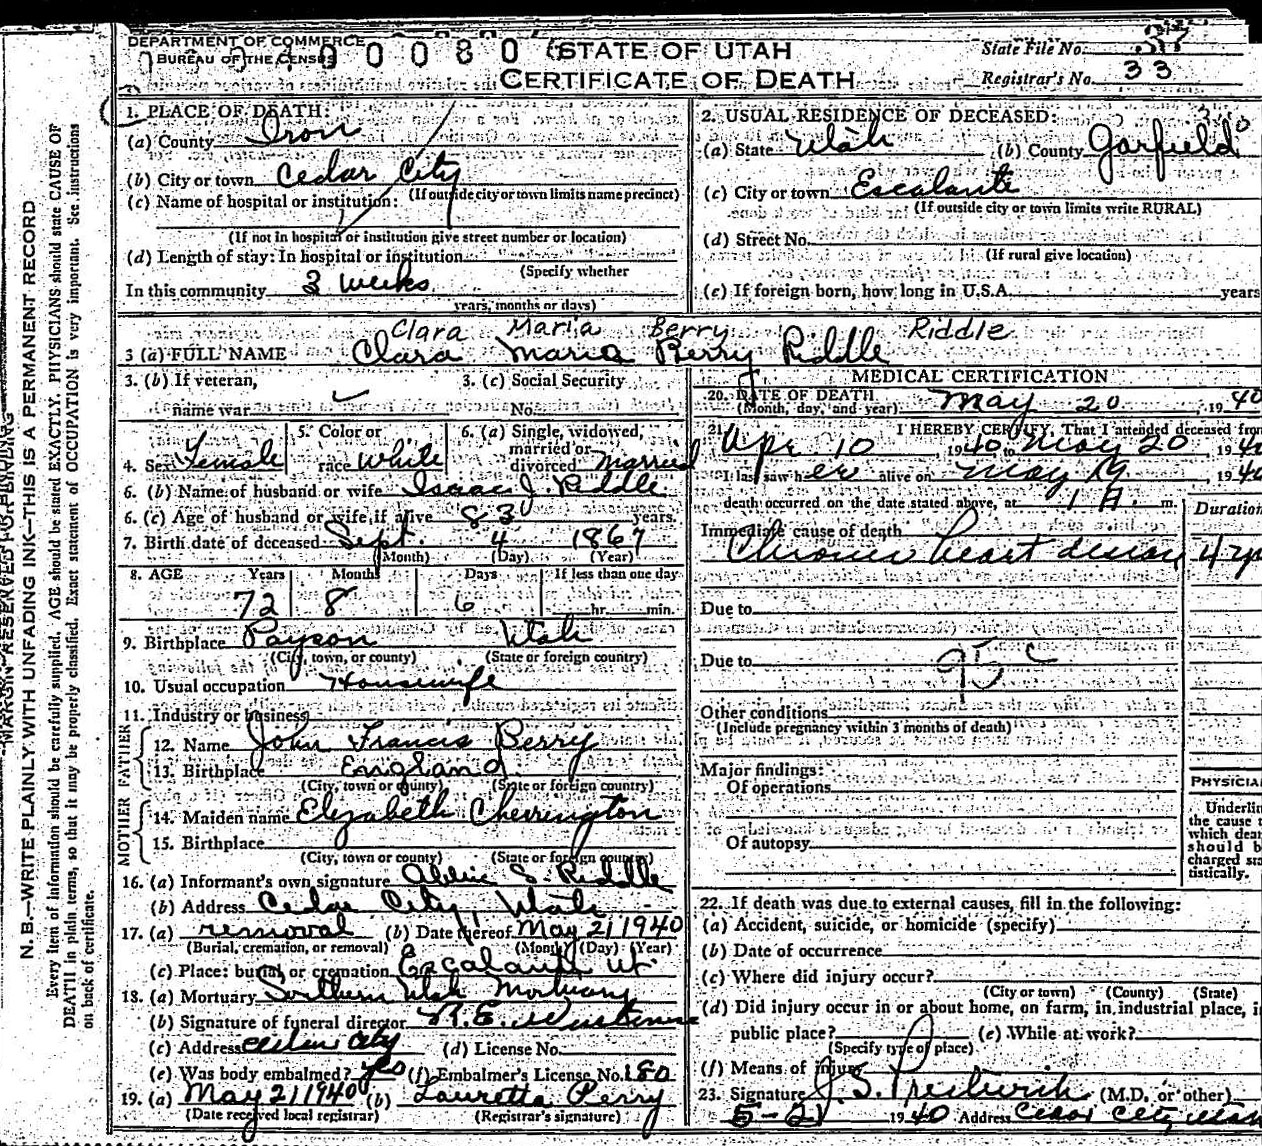 DEPARTMENT OF COMMERCE
BUREAU OF THE CENSUS
STATE OF UTAH
CERTIFICATE OF DEATH
State File No. 37
Registrar's No. 33
1. PLACE OF DEATH:
(a) County Iron
(b) City or town Cedar City
(If outside city or town limits name precinct)
(c) Name of hospital or institution:
(If not in hospital or institution give street number or location)
(d) Length of stay: In hospital or institution
(Specify whether
In this community 3 weeks
years, months or days)
2. USUAL RESIDENCE OF DECEASED:
(a) State Utah (b) County Garfield
(c) City or town Escalante
(If outside city or town limits write RURAL)
(d) Street No.
(If rural give location)
(e) If foreign born, how long in U.S.A. years
Clara Maria Berry Riddle
3 (a) FULL NAME Clara Maria Berry Riddle
3. (b) If veteran, 3. (c) Social Security
name war No.
4. Sex Female 5. Color or race White 6. (a) Single, widowed, married or divorced Married
6. (b) Name of husband or wife Isaac J. Riddle
6. (c) Age of husband or wife, if alive 83 years.
7. Birth date of deceased Sept. 4 1867
(Month) (Day) (Year)
8. AGE Years Months Days If less than one day
72 8 6 hr. min.
9. Birthplace Payson Utah
(City, town, or county) (State or foreign country)
10. Usual occupation Housewife
11. Industry or business
FATHER
12. Name John Francis Berry
13. Birthplace England
(City, town or county) (State or foreign country)
MOTHER
14. Maiden name Elizabeth Cherrington
15. Birthplace
(City, town or county) (State or foreign country)
16. (a) Informant's own signature S Riddle
(b) Address Cedar City, Utah
17. (a) removal (b) Date thereof May 21 1940
(Burial, cremation, or removal) (Month) (Day) (Year)
(c) Place: burial or cremation Escalante Ut.
18. (a) Mortuary Southern Utah Mortuary
(b) Signature of funeral director
(c) Address Cedar City (d) License No.
(e) Was body embalmed? yes (f) Embalmer's License No. 180
19. (a) May 21 1940 (b) Lauretta Perry
(Date received local registrar) (Registrar's signature)
MEDICAL CERTIFICATION
20. DATE OF DEATH
(Month, day, and year) May 20, 1940
21. I HEREBY CERTIFY, That I attended deceased from
Apr 10 1940 to May 20 1940
I last saw her alive on May 19 1940
death occurred on the date stated above, at 1 A. m.
Duration
Immediate cause of death
Chronic heart disease 4
Due to
Due to
95 c
Other conditions
(Include pregnancy within 3 months of death)
Major findings:
Of operations
Of autopsy
PHYSICIA
Underlin
the cause t
which dea
should b
charged sta
tistically.
22. If death was due to external causes, fill in the following:
(a) Accident, suicide, or homicide (specify)
(b) Date of occurrence
(c) Where did injury occur?
(City or town) (County) (State)
(d) Did injury occur in or about home, on farm, in industrial place, i
public place? (e) While at work?
(Specify type of place)
(f) Means of injury
23. Signature J. S. Prestwich (M.D. or other)
5-21 1940 Address Cedar City Utah
MARGIN RESERVED FOR BINDING
N. B.—WRITE PLAINLY WITH UNFADING INK—THIS IS A PERMANENT RECORD
Every item of information should be carefully supplied. AGE should be stated EXACTLY. PHYSICIANS should state CAUSE OF
DEATH in plain terms, so that it may be properly classified. Exact statement of OCCUPATION is very important. See instructions
on back of certificate.